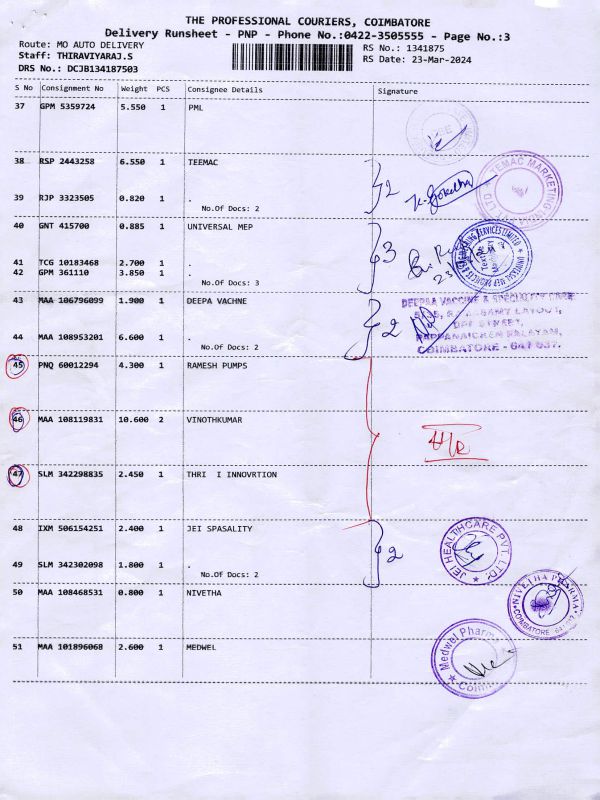 THE PROFESSIONAL COURIERS, COIMBATORE
Delivery Runsheet - PNP - Phone No.:0422-3505555 - Page No.:3
Route: MO AUTO DELIVERY RS No.: 1341875
Staff: THIRAVIYARAJ.S RS Date: 23-Mar-2024
DRS No.: DCJB134187503
S No Consignment No Weight PCS Consignee Details Signature
37 GPM 5359724 5.550 1 PML
38 RSP 2443258 6.550 1 TEEMAC
39 RJP 3323505 0.820 1 .
No.Of Docs: 2
2
TEEMAC MARKETING
40 GNT 415700 0.885 1 UNIVERSAL MEP
41 TCG 10183468 2.700 1 .
42 GPM 361110 3.850 1 .
No.Of Docs: 3
3
UNIVERSAL MEP PROJECTS & ENGINEERING SERVICES LIMITED
43 MAA 106796099 1.900 1 DEEPA VACHNE
44 MAA 108953201 6.600 1 .
No.Of Docs: 2
2
DEEPAA VACCINE & SPECIALITY CARE
LAYOUT,
STREET,
PAPPANAICKEN PALAYAM,
COIMBATORE - 641 037.
45 PNQ 60012294 4.300 1 RAMESH PUMPS
46 MAA 108119831 10.600 2 VINOTHKUMAR
47 SLM 342298835 2.450 1 THRI I INNOVRTION
48 IXM 506154251 2.400 1 JEI SPASALITY
49 SLM 342302098 1.800 1 .
No.Of Docs: 2
2
JEI HEALTHCARE PVT. LTD.
50 MAA 108468531 0.800 1 NIVETHA
NIVETHA PHARMA
COIMBATORE
51 MAA 101896068 2.600 1 MEDWEL
Medwel Pharma